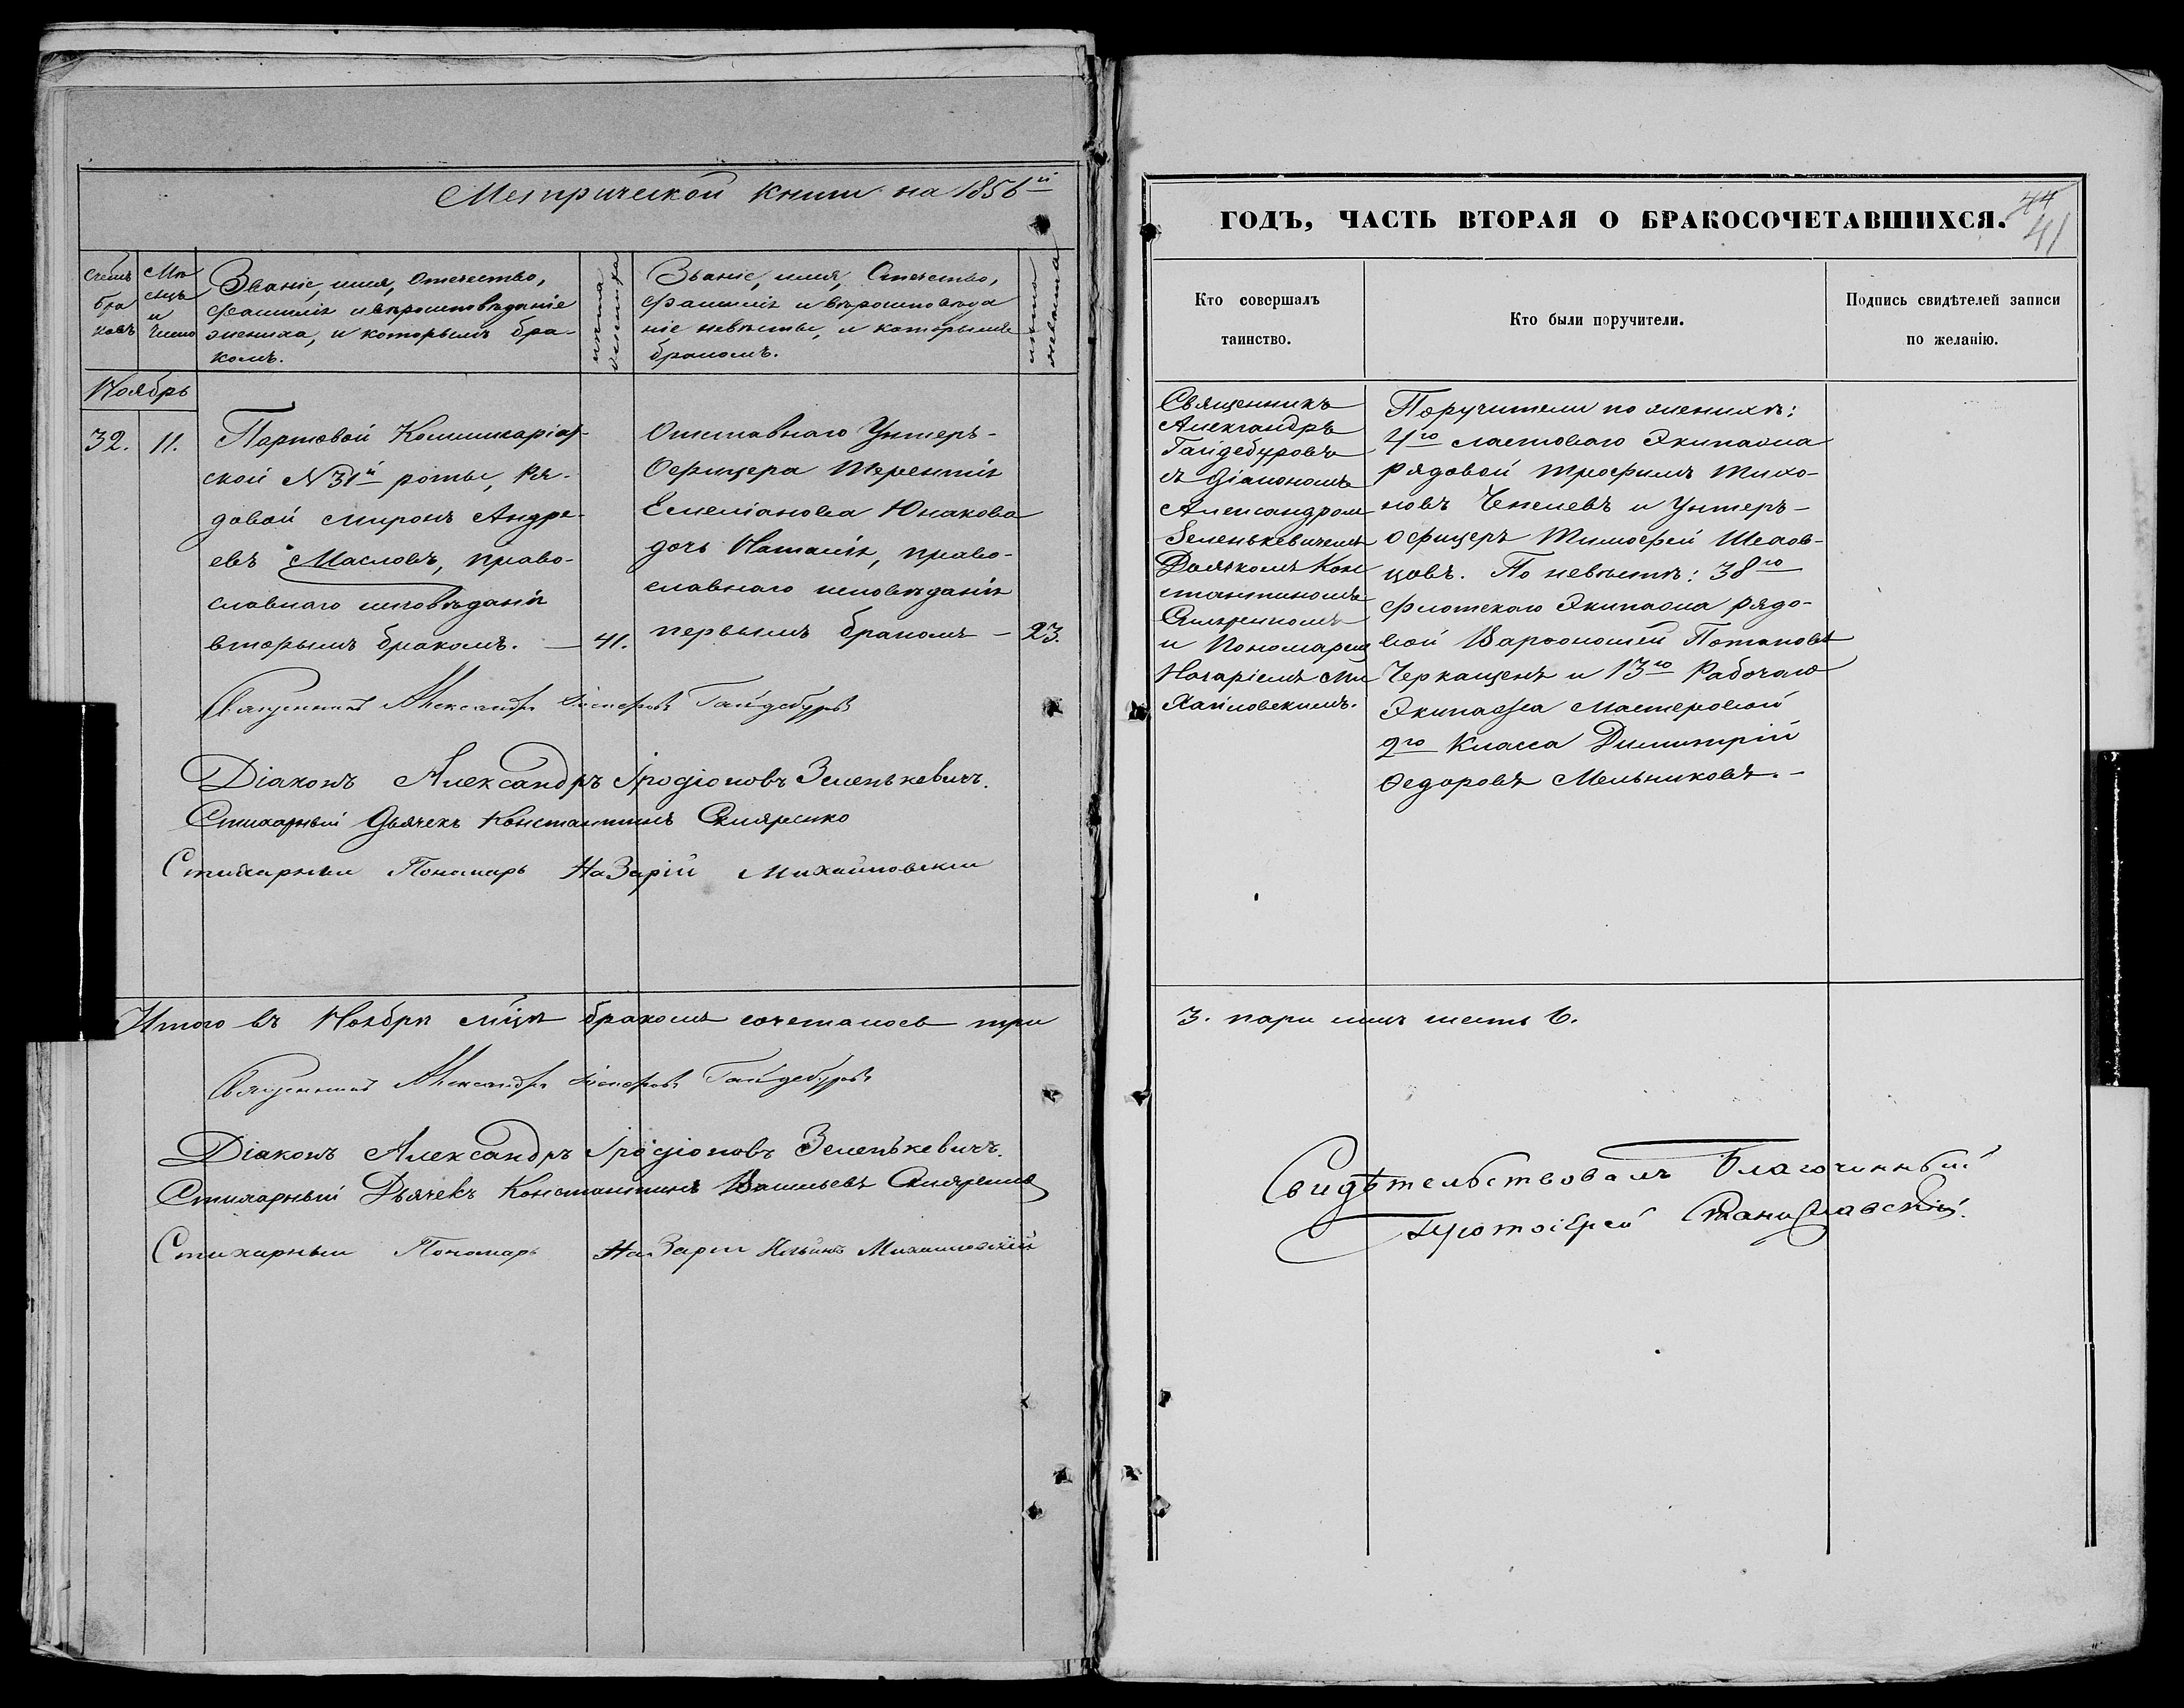 Метрической книги на 1856й
ГОДЪ, ЧАСТЬ ВТОРАЯ О БРАКОСОЧЕТАВШИХСЯ.
44
41
Счетъ браковъ
Мѣсяцъ и число
Званіе, имя, Отечество,
фамилія и вѣроисповѣданіе
жениха, и которымъ бра-
комъ.
лѣта жениха
Званіе, имя, Отечество,
фамилія и вѣроисповѣда
ніе невѣсты, и которымъ
бракомъ.
лѣта невѣсты
Кто совершалъ
таинство.
Кто были поручители.
Подпись свидѣтелей записи
по желанію.
Ноябрь
32. 11.
Портовой Коммисаріат-
ской N 31й роты, Ря-
довой Миронъ Андре-
евъ Масловъ, право-
славнаго исповѣданія
вторымъ бракомъ. — 41.
Отставнаго Унтеръ-
Офицера Терентія
Емеліанова Юнакова
дочь Наталія, право-
славнаго исповѣданія
первымъ бракомъ — 23.
Священникъ
Александръ
Гайдебуровъ
съ Діакономъ
Александром
Зеленькевичемъ
Дьячкомъ Кон
стантиномъ
Скляренкомъ
и Пономарем
Назаріемъ Ми
хайловскимъ.
Поручители по женихѣ:
4го ластоваго Экипажа
рядовой Трофимъ Тихо-
новъ Чепелевъ и Унтеръ-
офицеръ Тимофей Шевов-
цовъ. По невѣстѣ: 38го
флотскаго Экипажа рядо-
вой Варфоломей Потаповъ
Черкащенъ и 13го Рабочаго
Экипажа Мастеровой
2го Класса Димитрій
Федоровъ Мельниковъ. -
Священникъ Александръ Гайдебуровъ
Діаконъ Александръ Іродіоновъ Зеленькевичъ.
Стихарный Дьячекъ Константинъ Скляренко
Стихарный Пономарь Назарій Михайловскій
Итого въ Ноябрѣ мцѣ бракомъ сочеталось три
3. пары лицъ шесть 6.
Священникъ Александръ Гайдебуровъ
Діаконъ Александръ Іродіоновъ Зеленькевичъ.
Стихарный Дьячекъ Константинъ Васильевъ Скляренко
Стихарный Пономарь Назарій Ильинъ Михайловскій
Свидѣтельствовалъ Благочинный
Протоіерей Станиславскій.